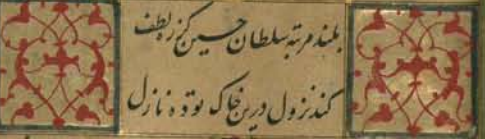 بلند مرتبه سلطان حسین کز ره لطف
کند نزول درین خاک توده نازل